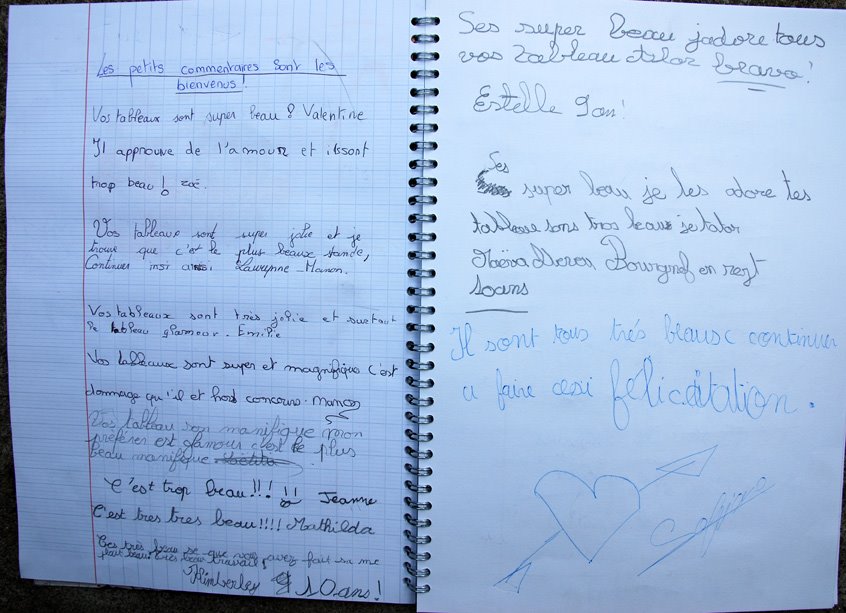 Les petits commentaires sont les
bienvenus!
Vos tableaux sont super beau! Valentine
Il approuve de l'amour et ils sont
trop beau! zoé.
Vos tableaux sont super jolie et je
trouve que c'est le plus beaux stande,
Continuer insi Lauryne _ Manon.
Vos tableaux sont très jolie et surtout
le tableau glamour. Emilie
Vos tableaux sont super et magnifique c'est
dommage qu'il et hors concours. Manon
Vos tableau son manifique mon
préférer est glamour c'est le plus
beau manifique
C'est trop beau!!! Jeanne
C'est tres tres beau!!!! Mathilda
très beau se que vous avez fait sa me
très beau travail,
Kimberley 10ans!
Ses super beau j'adore tous
vos tableau bravo!
Estelle
Ses
super beau je les adore tes
tableau sons tros beau
Bourgnef en retz
10ans
Il sont tous trés beausc continuer
a faire félicitation.